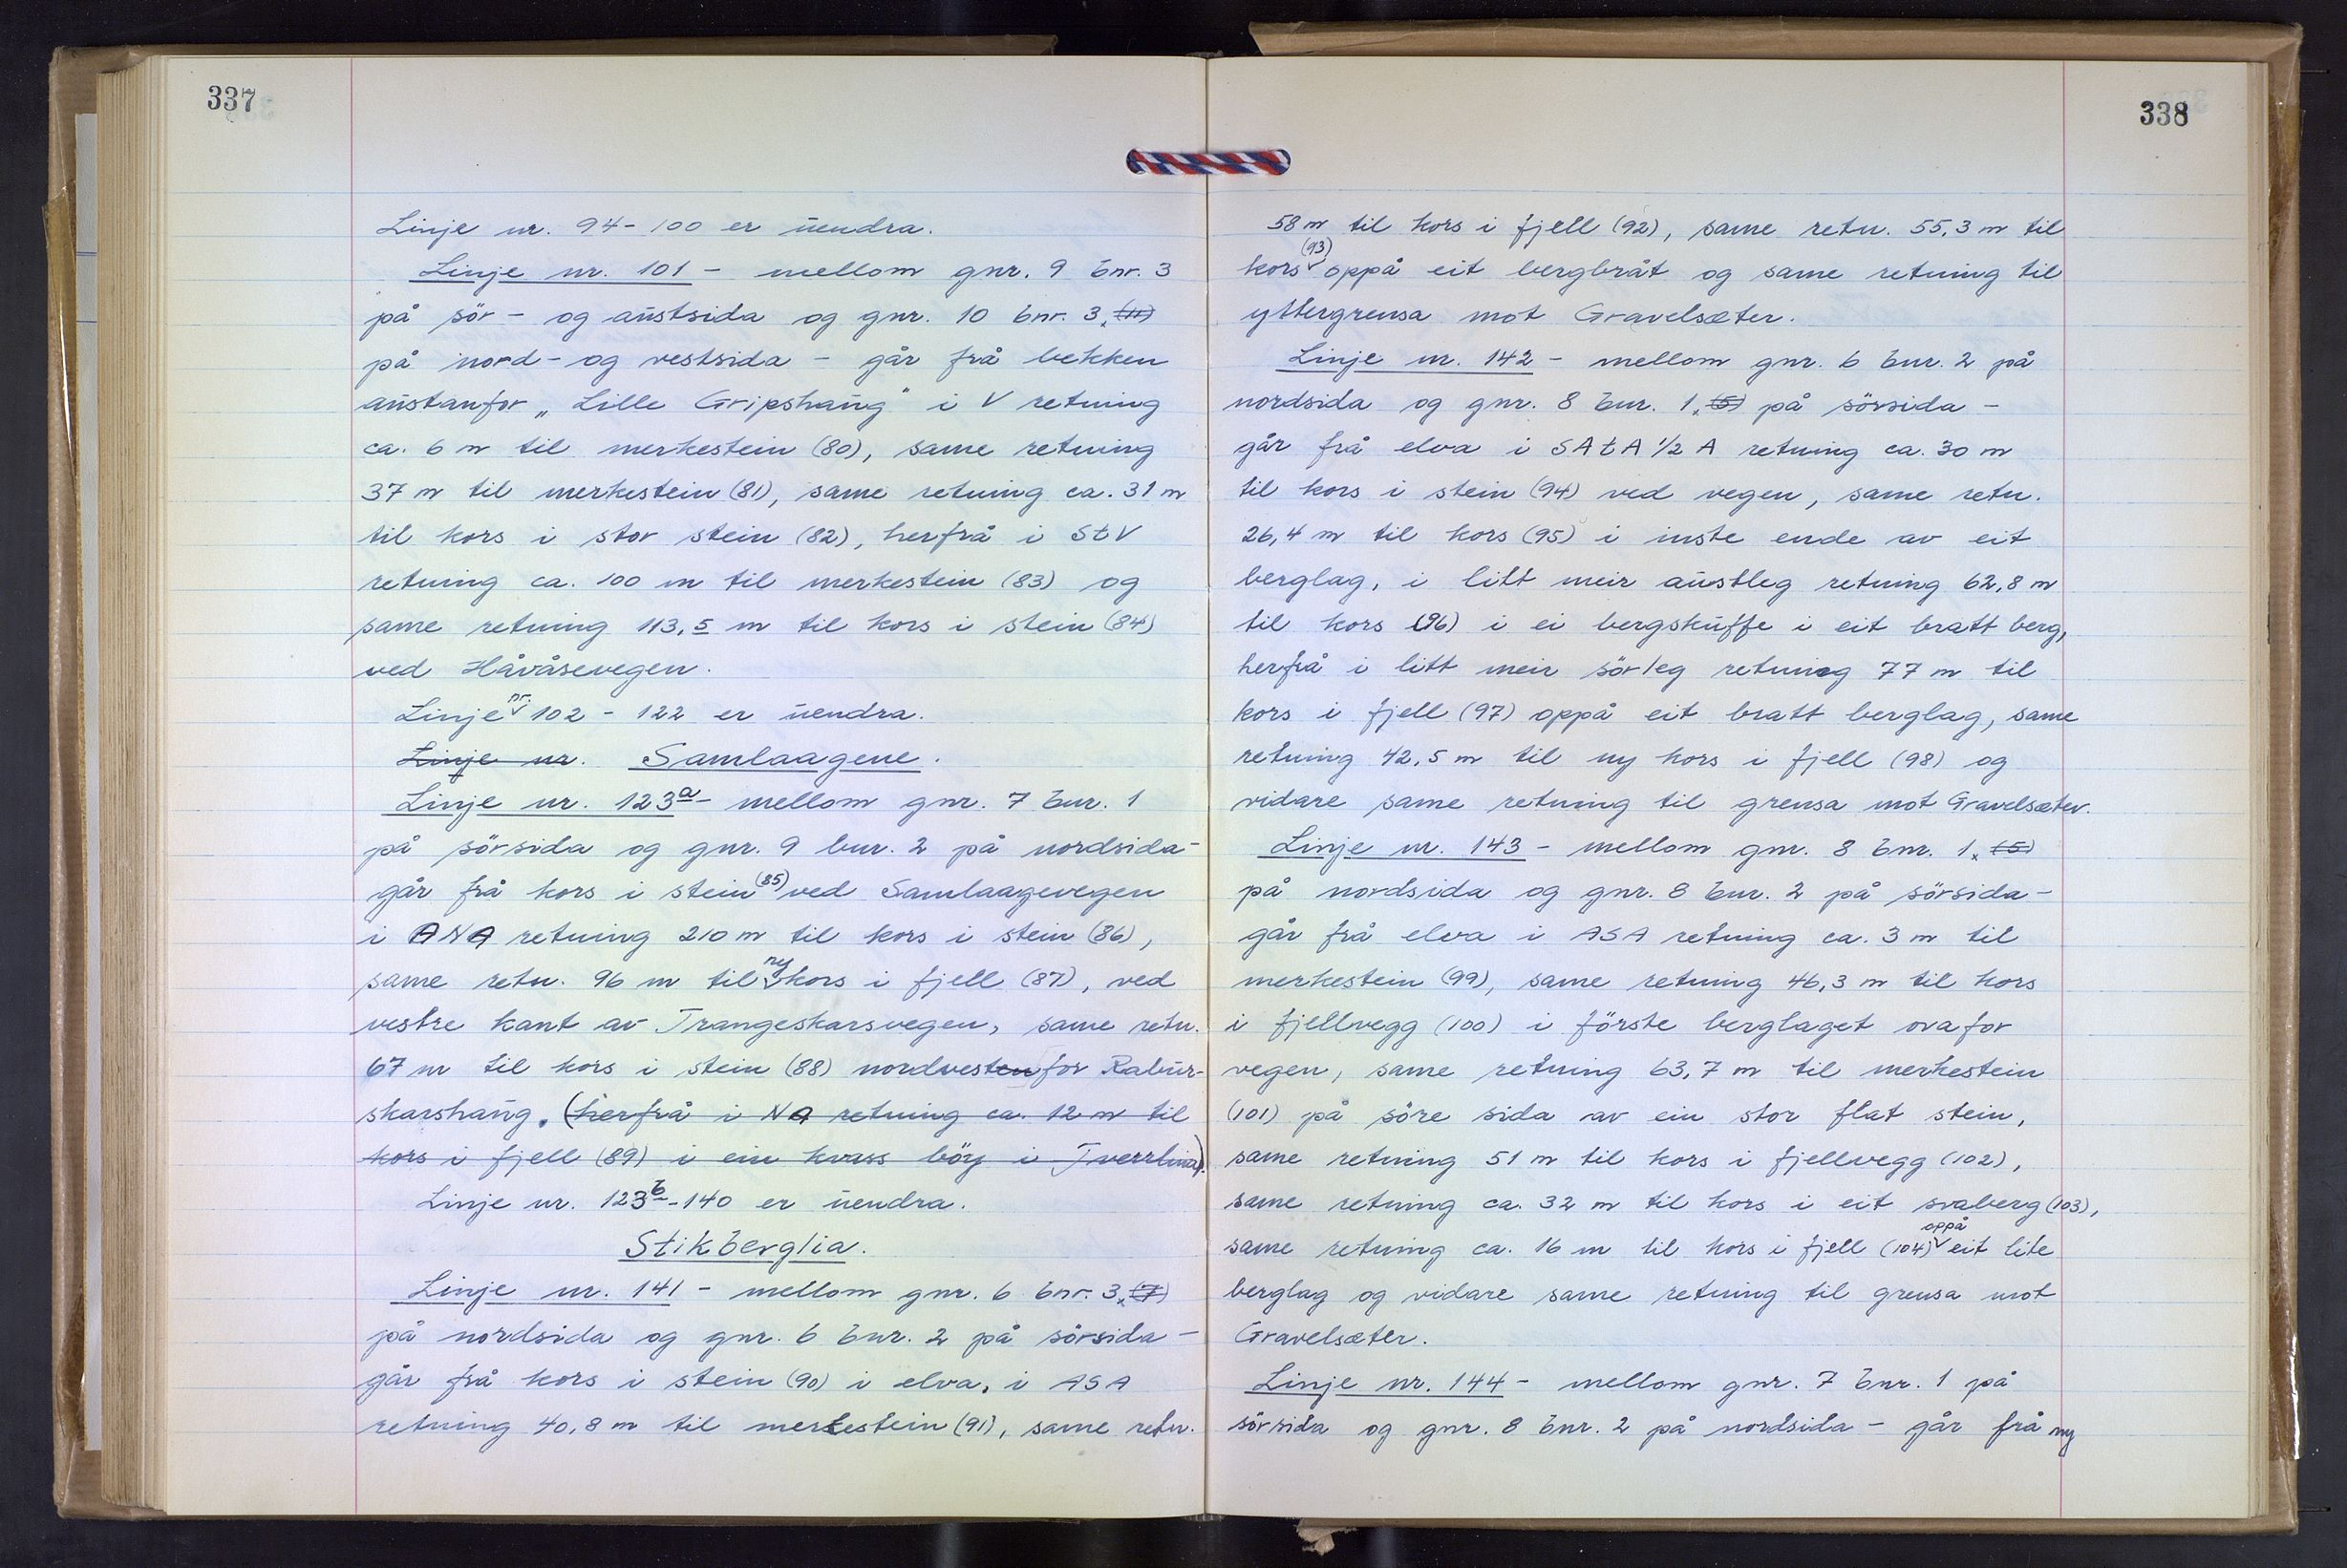 337
Linje nr. 94 - 100 er uendra.
Linje nr. 101 - mellom gnr. 9 bnr. 3
på sör - og austsida og gnr. 10 bnr. 3, (11)
på nord - og vestsida - går frå bekken
austanfor „Lille Gripshaug" i V retning
ca. 6 m til merkestein (80), same retning
37 m til merkestein (81), same retning ca. 31 m
til kors i stor stein (82), herfrå i StV
retning ca. 100 m til merkestein (83) og
same retning 113,5 m til kors i stein (84)
ved Håvåsevegen.
Linje nr. 102 - 122 er uendra.
Linje nr. Samlaagene.
Linje nr. 123a - mellom gnr. 7 bnr. 1
på sörsida og gnr. 9 bnr. 2 på nordsida -
går frå kors i stein (85) ved Samlaagevegen
i ANA retning 210 m til kors i stein (86),
same retn. 96 m til ny kors i fjell (87), ved
vestre kant av Trangeskarsvegen, same retn.
67 m til kors i stein (88) nordvesten for Rabur-
skarshaug. (herfrå i NA retning ca. 12 m til
kors i fjell (89) i ein kvass böy i Tverrlina).
Linje nr. 123b - 140 er uendra.
Stikberglia.
Linje nr. 141 - mellom gnr. 6 bnr. 3, (7)
på nordsida og gnr. 6 bnr. 2 på sörsida -
går frå kors i stein (90) i elva, i ASA
retning 40,8 m til merkestein (91), same retn.
338
58 m til kors i fjell (92), same retn. 55,3 m til
kors (93) oppå eit bergbråt og same retning til
yttergrensa mot Gravelsæter.
Linje nr. 142 - mellom gnr. 6 bnr. 2 på
nordsida og gnr. 8 bnr. 1, (5) på sörsida -
går frå elva i SAtA 1/2 A retning ca. 30 m
til kors i stein (94) ved vegen, same retn.
26,4 m til kors (95) i inste ende av eit
berglag, i litt meir austleg retning 62,8 m
til kors (96) i ei bergskuffe i eit bratt berg,
herfrå i litt meir sörleg retning 77 m til
kors i fjell (97) oppå eit bratt berglag, same
retning 42,5 m til ny kors i fjell (98) og
vidare same retning til grensa mot Gravelsæter.
Linje nr. 143 - mellom gnr. 8 bnr. 1, (5)
på nordsida og gnr. 8 bnr. 2 på sörsida -
går frå elva i ASA retning ca. 3 m til
merkestein (99), same retning 46,3 m til kors
i fjellvegg (100) i förste berglaget ovafor
vegen, same retning 63,7 m til merkestein
(101) på söre sida av ein stor flat stein,
same retning 51 m til kors i fjellvegg (102),
same retning ca. 32 m til kors i eit svaberg (103),
same retning ca. 16 m til kors i fjell (104) oppå eit lite
berglag og vidare same retning til grensa mot
Gravelsæter.
Linje nr. 144 - mellom gnr. 7 bnr. 1 på
sörsida og gnr. 8 bnr. 2 på nordsida - går frå ny